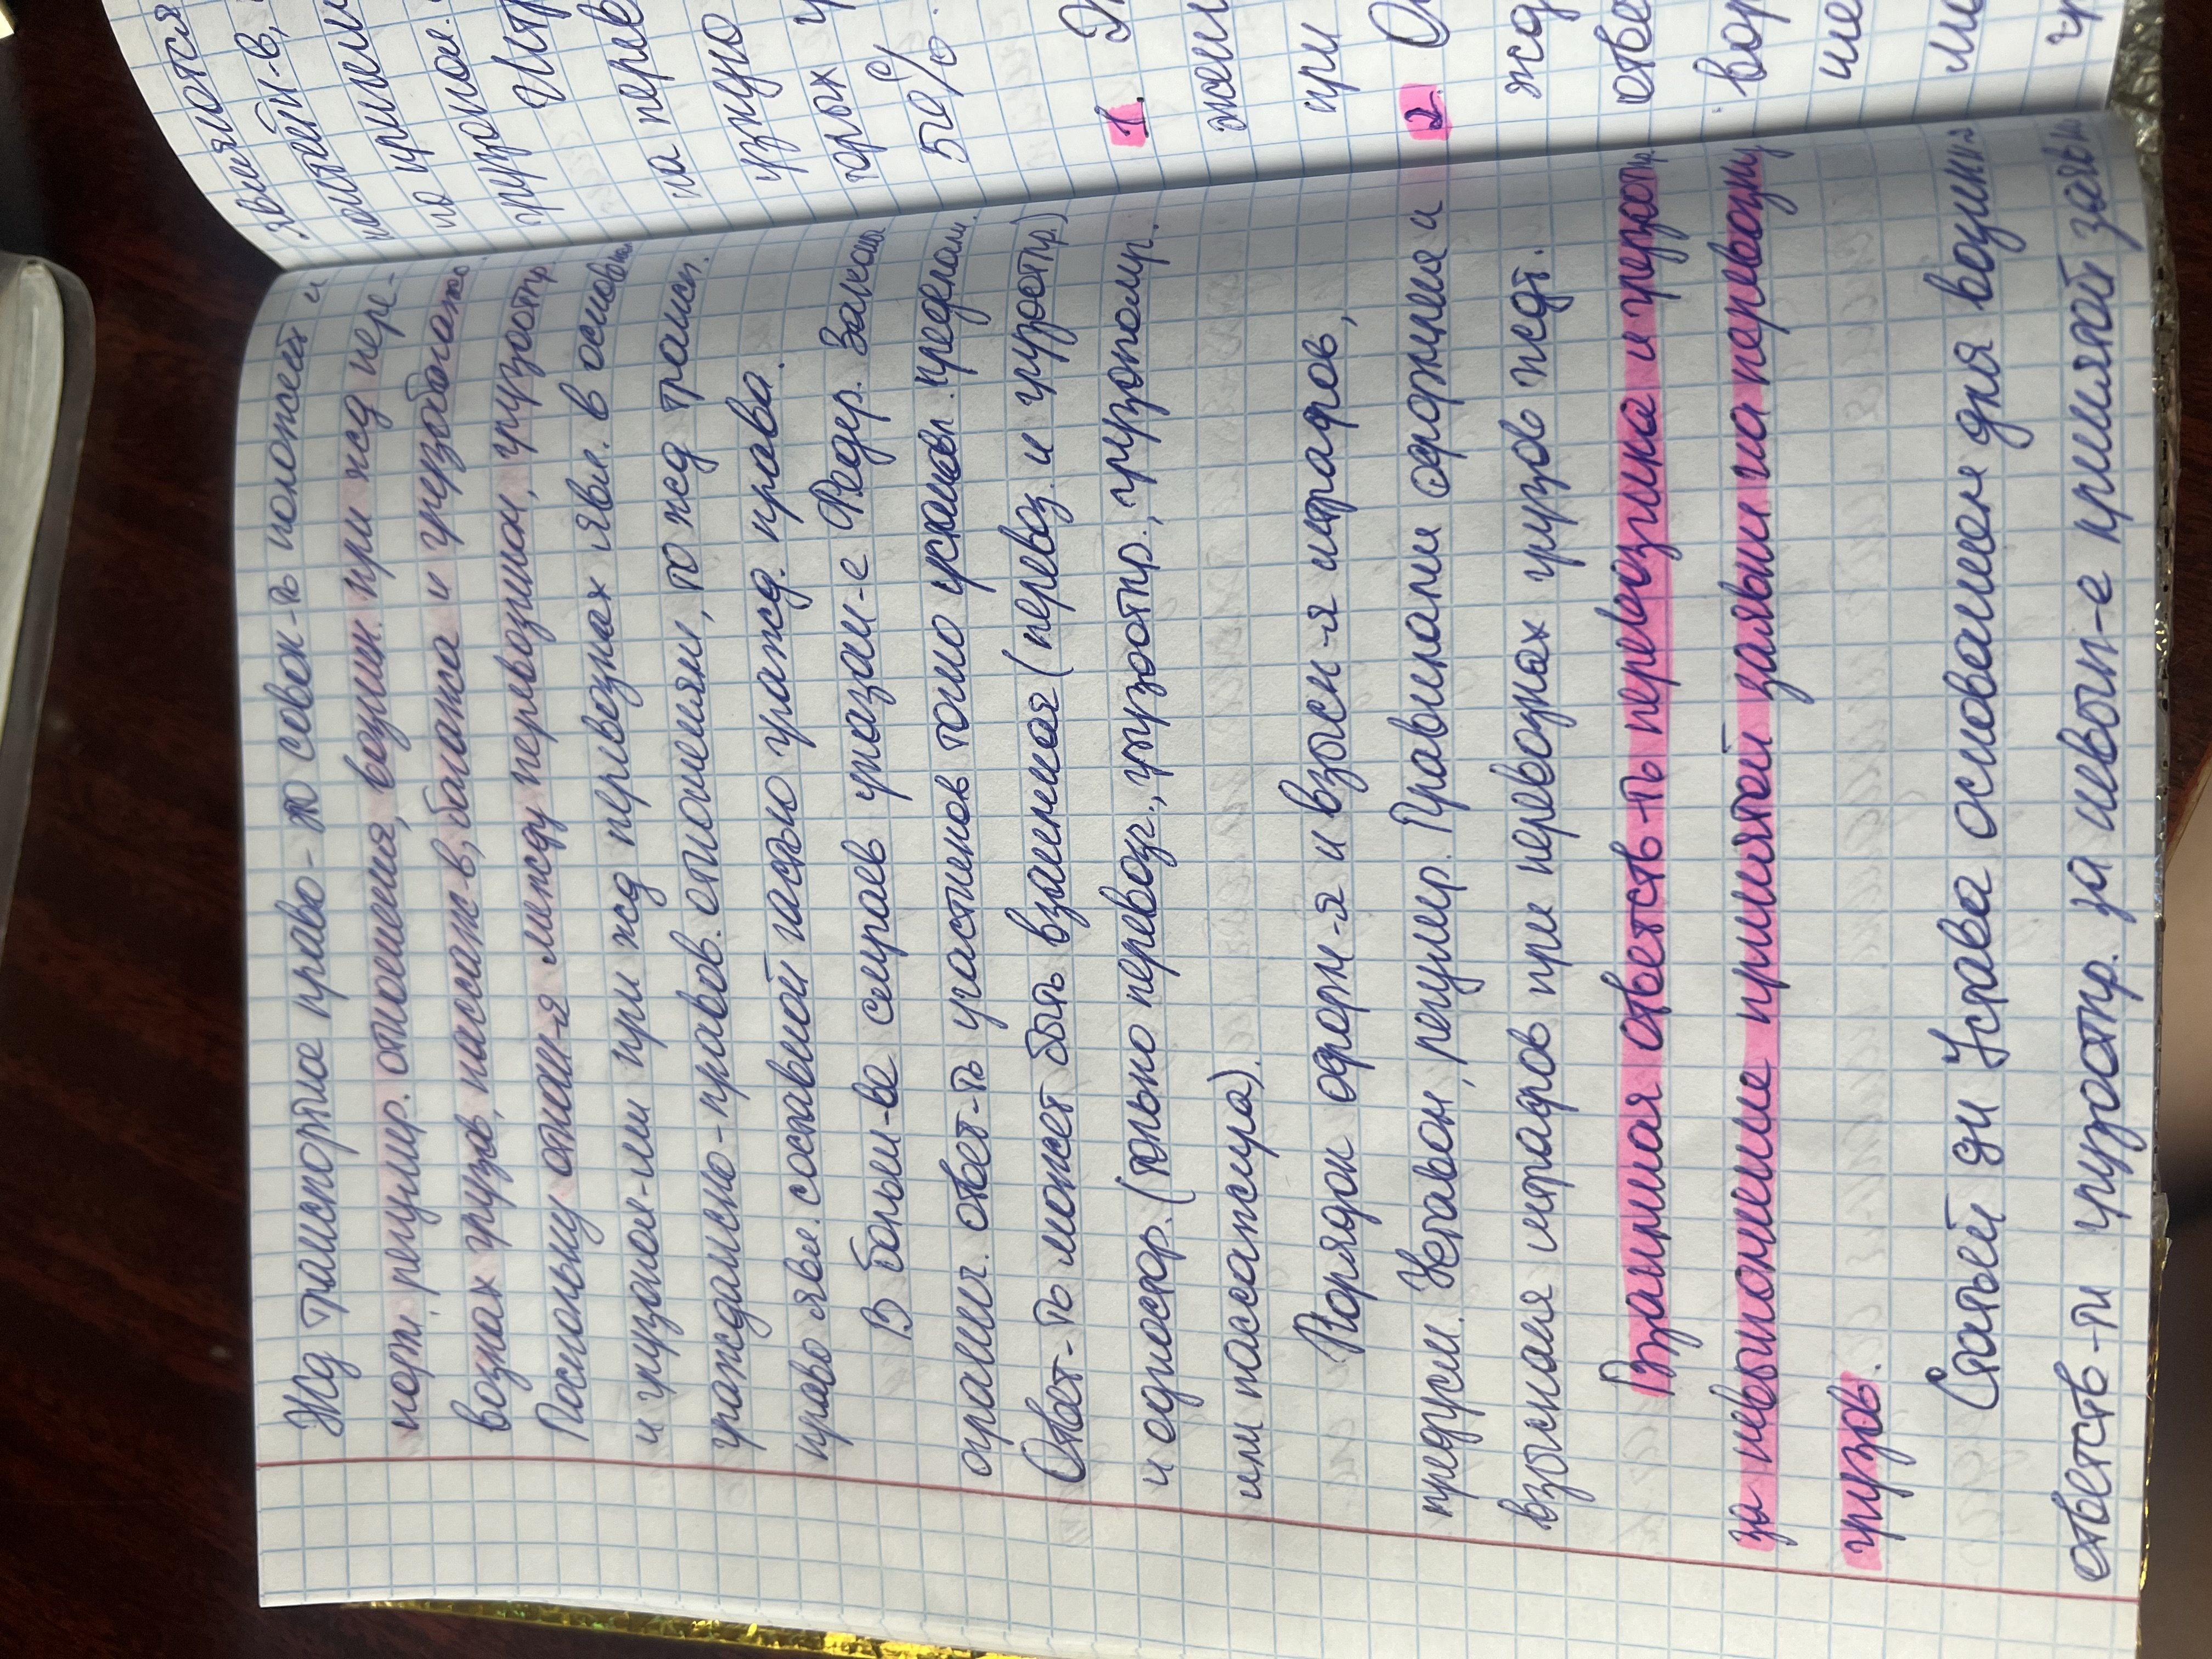 Жд транспортное право - это совок-ть положений и
норм, регулир. отношения, возник. при жд пере-
возках грузов, пассаж-в, багажа и грузобагажа.
Поскольку отнош-я между перевозчиком, грузоотпр.
и грузопол-ми при жд перевозках явл. в основном
гражданско-правов. отношениями, то жд трансп.
право явл. составной частью гражд. права.
В больш-ве случаев указан-е Федер. Законы
огранич. ответ-ть участников только установл. пределами.
Ответ-ть может быть взаимная (перевоз. и грузоотпр.)
и одностор. (только перевозч., грузоотпр., грузополуч.
или пассажира).
Порядок оформ-я и взыск-я штрафов,
предусм. Уставом, регулир. Правилами оформления и
взыскания штрафов при перевозках грузов ждт.
Взаимная ответств-ть перевозчика и грузоотпр.
за невыполнение принятой заявки на перевозку
грузов.
Статьей 94 Устава основанием для возник-я
ответств-ти грузоотпр. за невып-е принятой заявки
являются
на перев
50%.
1.
при
2. О
жд
отве